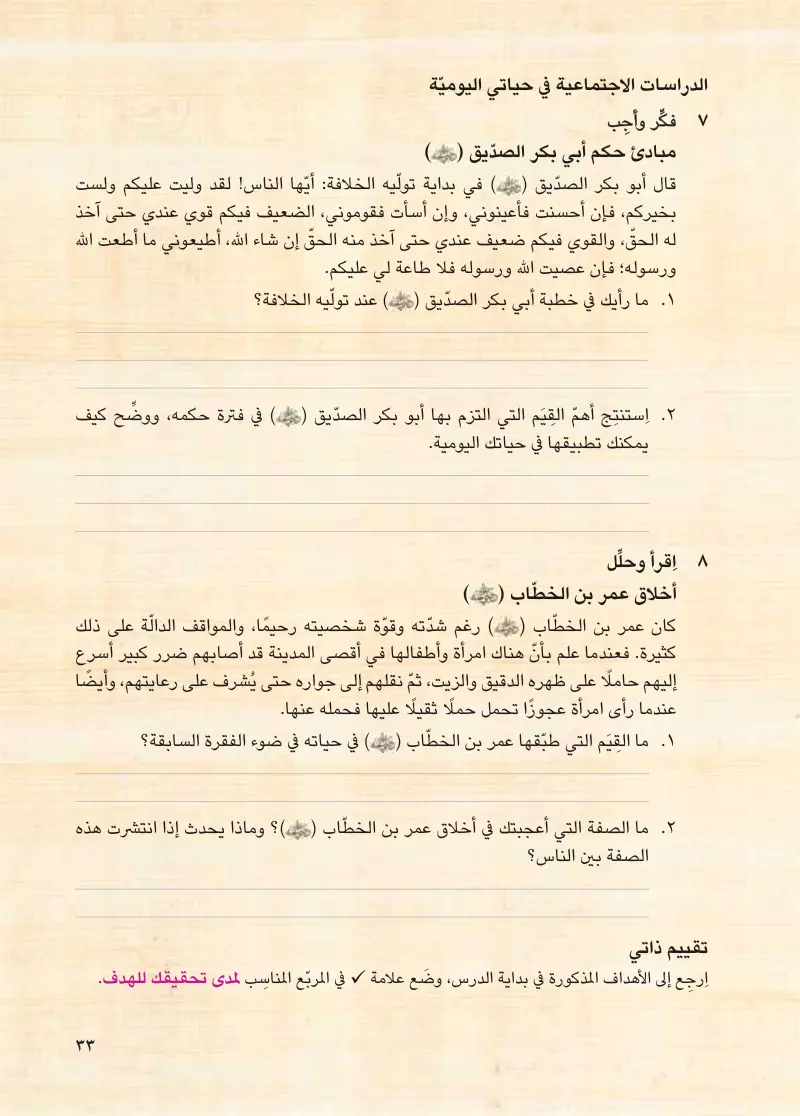 الدراسات الاجتماعية في حياتي اليوميّة
٧ فكِّر وأجِب
مبادئ حكم أبي بكر الصدّيق (رضي الله عنه)
قال أبو بكر الصدّيق (رضي الله عنه) في بداية تولّيه الخلافة: أيّها الناس! لقد وليت عليكم ولست
بخيركم، فإن أحسنت فأعينوني، وإن أسأت فقوموني، الضعيف فيكم قوي عندي حتى آخذ
له الحقّ، والقوي فيكم ضعيف عندي حتى آخذ منه الحقّ إن شاء الله، أطيعوني ما أطعت الله
ورسوله؛ فإن عصيت الله ورسوله فلا طاعة لي عليكم.
١. ما رأيك في خطبة أبي بكر الصدّيق (رضي الله عنه) عند تولّيه الخلافة؟
٢. اِستنتِج أهمّ القِيَم التي التزم بها أبو بكر الصدّيق (رضي الله عنه) في فترة حكمه، ووضِّح كيف
يمكنك تطبيقها في حياتك اليومية.
٨ اِقرأ وحلِّل
أخلاق عمر بن الخطّاب (رضي الله عنه)
كان عمر بن الخطّاب (رضي الله عنه) رغم شدّته وقوّة شخصيته رحيمًا، والمواقف الدالّة على ذلك
كثيرة. فعندما علم بأنّ هناك امرأة وأطفالها في أقصى المدينة قد أصابهم ضرر كبير أسرع
إليهم حاملًا على ظهره الدقيق والزيت، ثمّ نقلهم إلى جواره حتى يُشرف على رعايتهم، وأيضًا
عندما رأى امرأة عجوزًا تحمل حملًا ثقيلًا عليها فحمله عنها.
١. ما القِيَم التي طبّقها عمر بن الخطّاب (رضي الله عنه) في حياته في ضوء الفقرة السابقة؟
٢. ما الصفة التي أعجبتك في أخلاق عمر بن الخطّاب (رضي الله عنه)؟ وماذا يحدث إذا انتشرت هذه
الصفة بين الناس؟
تقييم ذاتي
اِرجِع إلى الأهداف المذكورة في بداية الدرس، وضَع علامة ✓ في المربّع المناسِب لمدى تحقيقك للهدف.
٣٣